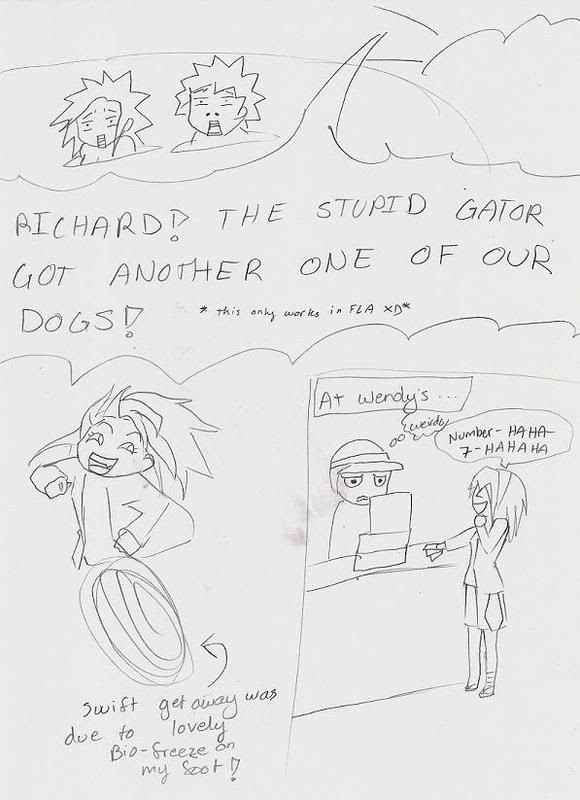 RICHARD!? THE STUPID GATOR
GOT ANOTHER ONE OF OUR
DOGS!?
* this only works in FLA XD*
At Wendy's ...
weirdo
Number-HAHA-
7-HAHAHA
swift get away was
due to lovely
Bio-freeze on
my foot!?